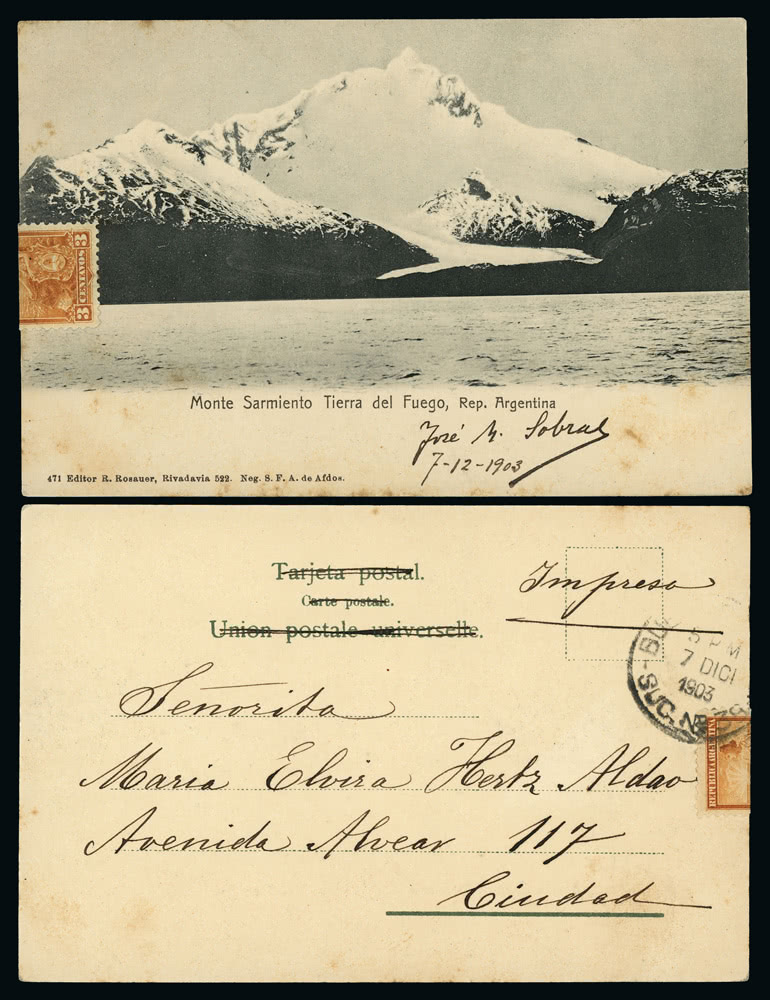 3 CENTAVOS 3
Monte Sarmiento Tierra del Fuego, Rep. Argentina
José M. Sobral
7-12-1903
471 Editor R. Rosauer, Rivadavia 522. Neg. S. F. A. de Afdos.
Tarjeta postal.
Carte postale.
Union postale universelle.
Impreso
5 PM
7 DICI
1903
SUC. Nº
REPUBLICA ARGENTINA
Señorita
Maria Elvira Hertz Aldao
Avenida Alvear 117
Ciudad